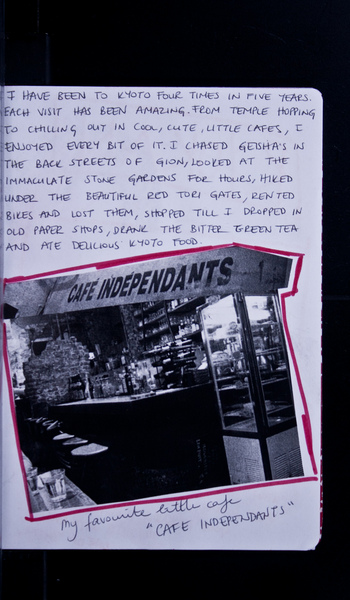 I HAVE BEEN TO KYOTO FOUR TIMES IN FIVE YEARS.
EACH VISIT HAS BEEN AMAZING. FROM TEMPLE HOPPING
TO CHILLING OUT IN COOL, CUTE, LITTLE CAFES, I
ENJOYED EVERY BIT OF IT. I CHASED GEISHA'S IN
THE BACK STREETS OF GION, LOOKED AT THE
IMMACULATE STONE GARDENS FOR HOURS, HIKED
UNDER THE BEAUTIFUL RED TORI GATES, RENTED
BIKES AND LOST THEM, SHOPPED TILL I DROPPED IN
OLD PAPER SHOPS, DRANK THE BITTER GREEN TEA
AND ATE DELICIOUS KYOTO FOOD.
CAFÉ INDEPENDANTS
my favourite little cafe
"CAFE INDEPENDANTS"